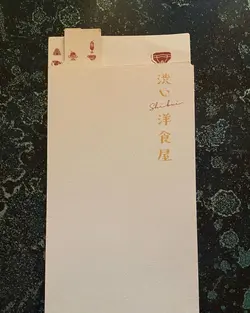 澁い洋食屋
Shibui